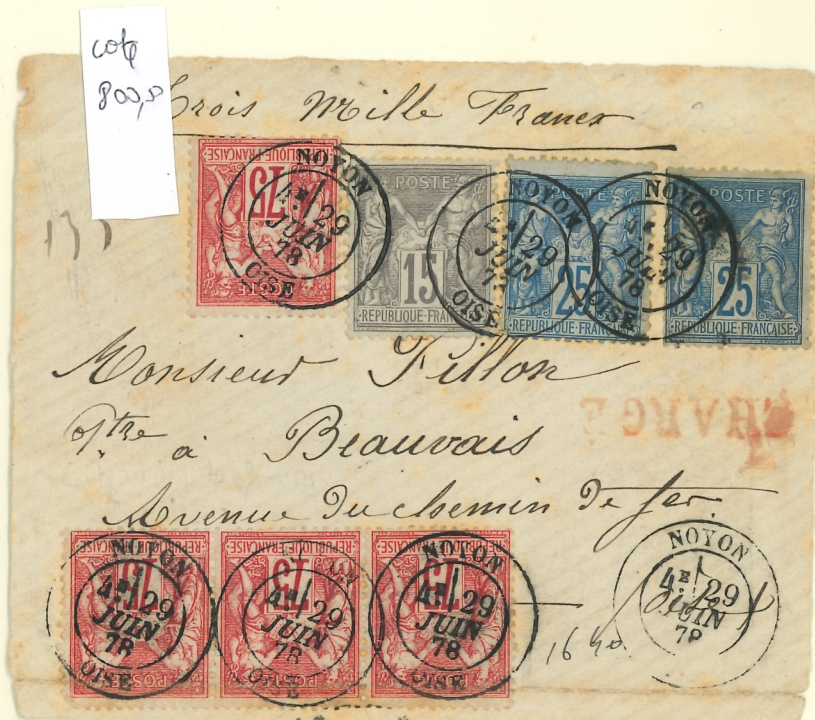 cote
800,00
Trois Mille Francs
RÉPUBLIQUE FRANÇAISE
75
POSTES
NOYON
4E 29
JUIN
78
OISE
POSTE
15
REPUBLIQUE FRANÇAISE
NOYON
4E 29
JUIN
78
OISE
POSTE
25
REPUBLIQUE FRANÇAISE
NOYON
4E 29
JUIN
78
OISE
POSTE
25
REPUBLIQUE FRANÇAISE
Monsieur Fillon
CHARGÉ
à Beauvais
Avenue du chemin de fer.
REPUBLIQUE FRANÇAISE
75
POSTES
NOYON
4E 29
JUIN
78
OISE
REPUBLIQUE FRANÇAISE
75
POSTES
NOYON
4E 29
JUIN
78
OISE
REPUBLIQUE FRANÇAISE
75
POSTES
NOYON
4E 29
JUIN
78
OISE
NOYON
4E 29
JUIN
78
Oise